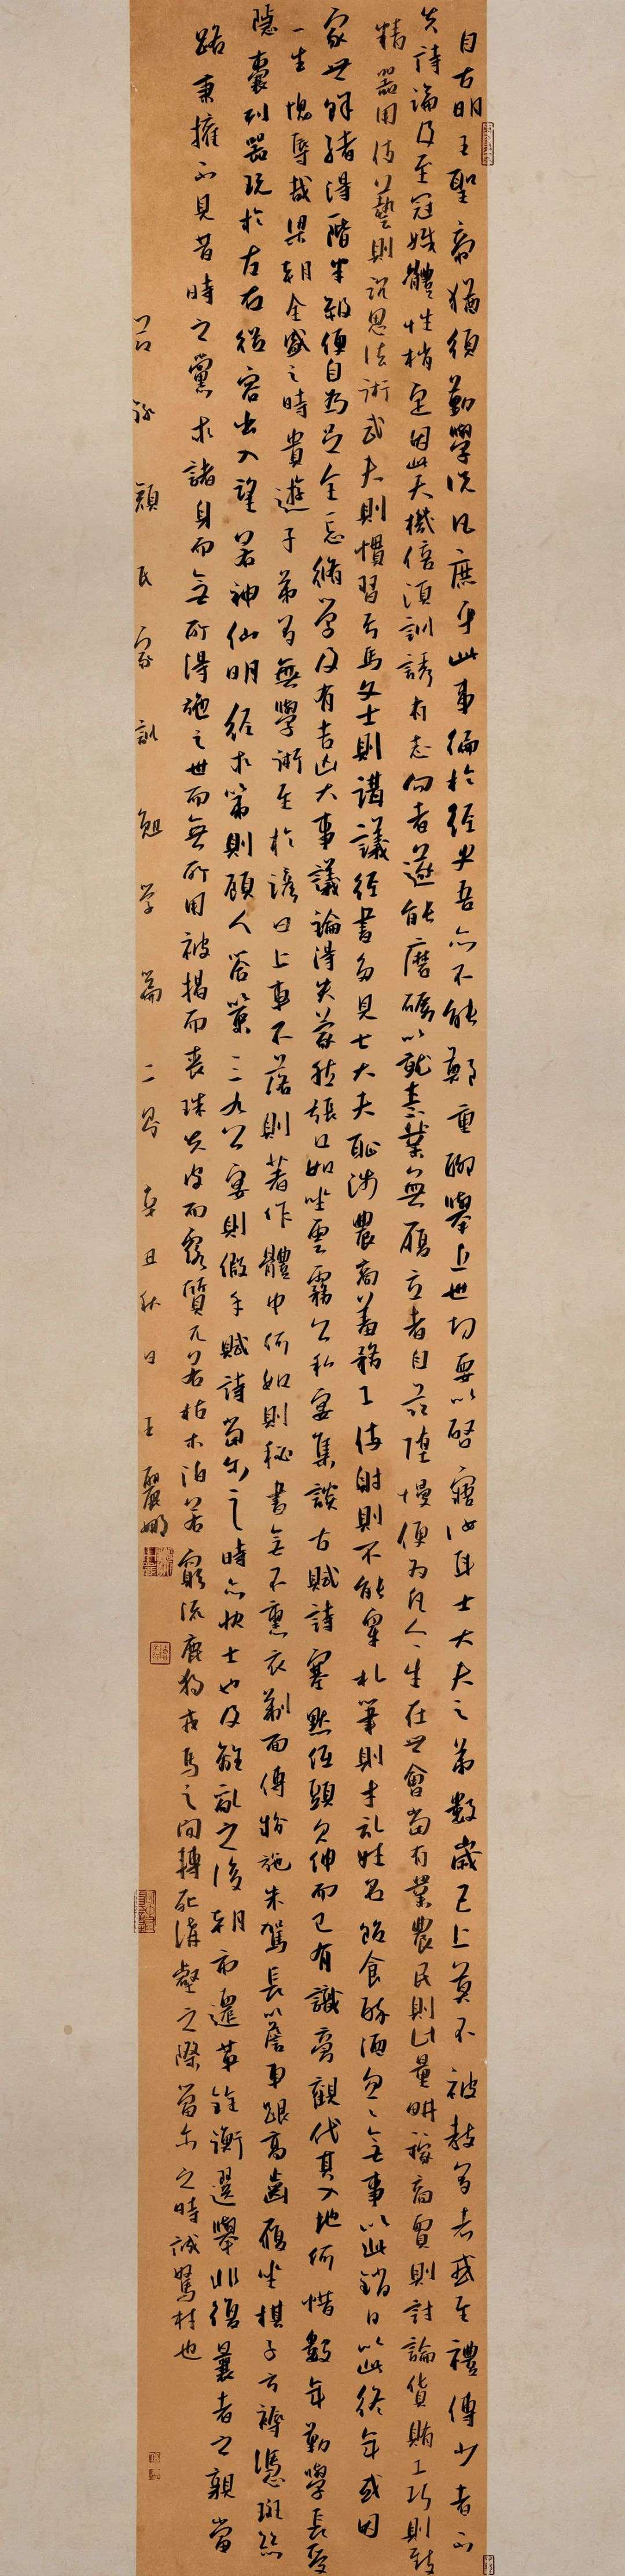 自古明王聖帝猶須勤學況凡庶乎此事徧於經史吾亦不能鄭重聊舉近世切要以啓寤汝耳士大夫之弟數歲已上莫不被教多者或至禮傳少者不
失詩論及至冠婚體性稍定因此天機倍須訓誘有志向者遂能磨礪以就素業無履立者自茲墮慢便為凡人、生在世會當有業農民則計量耕稼商賈則討論貨賄工巧則致
精器用伎藝則沉思法術武夫則慣習弓馬文士則講議經書多見士大夫恥涉農商羞務工伎射則不能穿札筆則才記姓名飽食醉酒忽、無事以此銷日以此終年或因
家世餘緒得階半級便自為足全忘脩學及有吉凶大事議論得失蒙然張口如坐雲霧公私宴集談古賦詩塞默低頭欠伸而已有識旁觀代其入地何惜數年勤學長受
一生愧辱哉梁朝全盛之時貴遊子弟多無學術至於諺曰上車不落則著作體中何如則秘書無不熏衣剃面傅粉施朱駕長簷車跟高齒屐坐棋子方褥憑斑絲
隱囊列器玩於左右從容出入望若神仙明經求第則顧人答策三九公宴則假手賦詩當爾之時亦快士也及離亂之後朝市遷革銓衡選舉非復曩者之親當
路秉權不見昔時之黨求諸身而無所得施之世而無所用被褐而喪珠失皮而露質兀若枯木泊若窮流鹿獨戎馬之間轉死溝壑之際當爾之時誠駑材也
顏氏家訓勉學篇二 辛丑秋日王麗娜